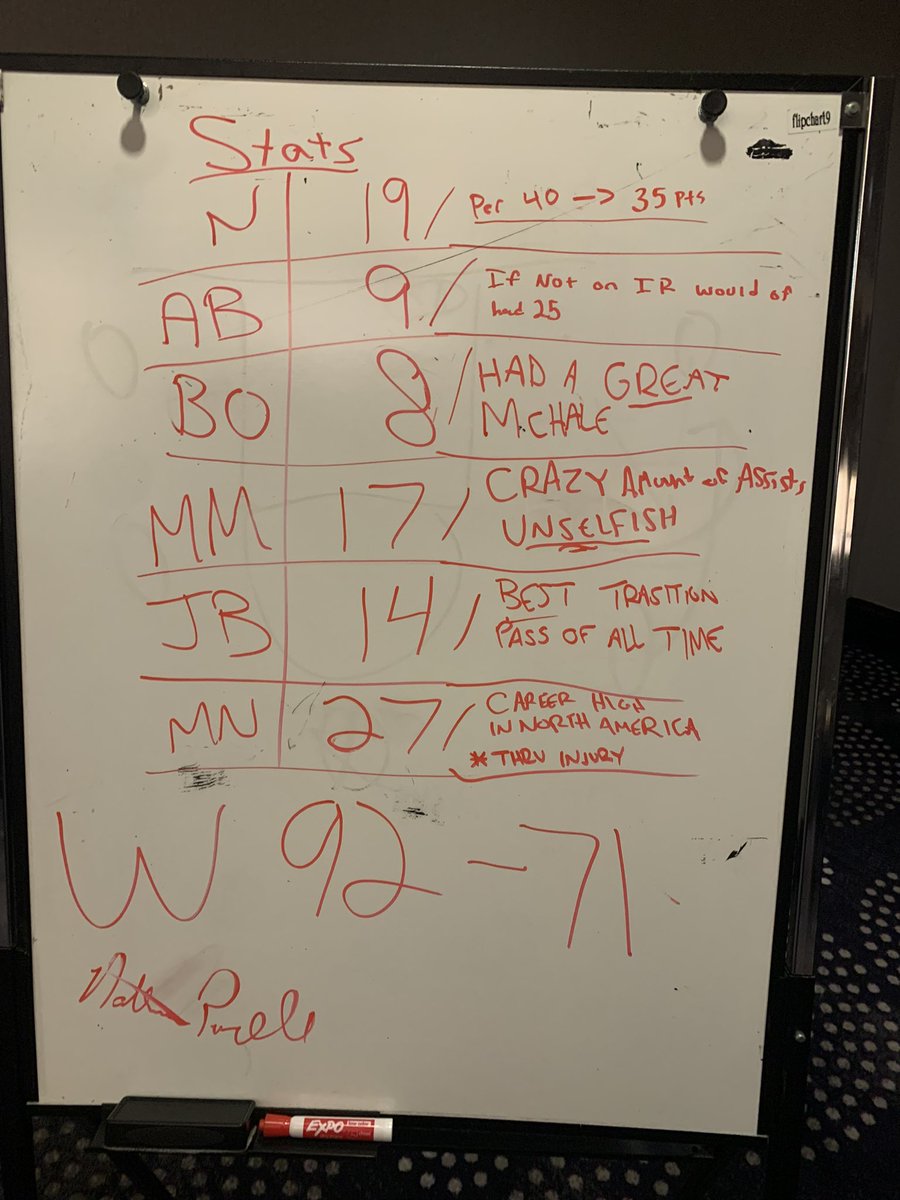 flipchart9
Stats
N 19/ Per 40 -> 35 Pts
AB 9/ If Not on IR would of
had 25
BO 8/ HAD A GREAT
McHALE
MM 17/ CRAZY Amount of Assists,
UNSELFISH
JB 14/ BEST TRASITION
PASS OF ALL TIME
MN 27/ CAREER HIGH
IN NORTH AMERICA
* THRU INJURY
W 92-71
EXPO